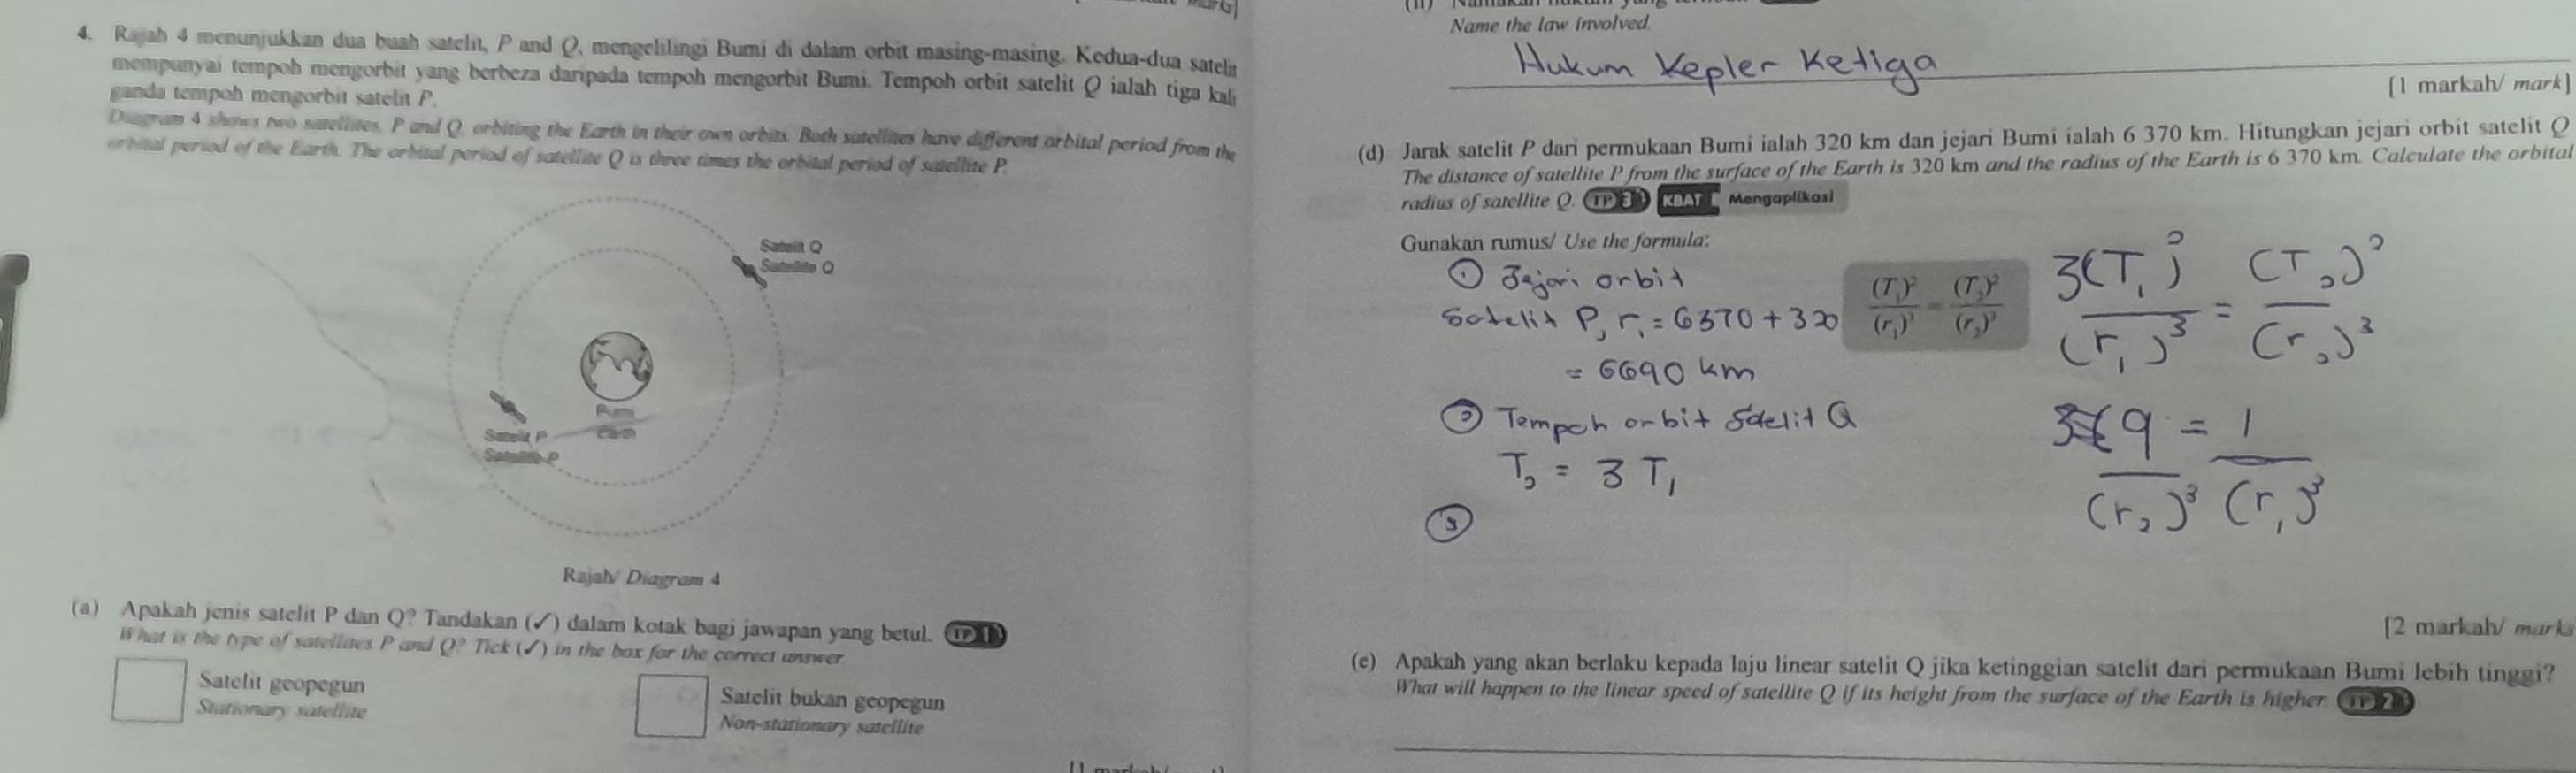 4. Rajah 4 menunjukkan dua buah satelit, P and Q, mengelilingi Bumi di dalam orbit masing-masing. Kedua-dua satelit
mempunyai tempoh mengorbit yang berbeza daripada tempoh mengorbit Bumi. Tempoh orbit satelit Q ialah tiga kali
ganda tempoh mengorbit satelit P.
Diagram 4 shows two satellites, P and Q, orbiting the Earth in their own orbits. Both satellites have different orbital period from the
orbital period of the Earth. The orbital period of satellite Q is three times the orbital period of satellite P.
Satelit Q
Satellite Q
Bumi
Earth
Satelit P
Satellite P
Rajah/ Diagram 4
(a) Apakah jenis satelit P dan Q? Tandakan (✓) dalam kotak bagi jawapan yang betul. TP 1
What is the type of satellites P and Q? Tick (✓) in the box for the correct answer
Satelit geopegun
Stationary satellite
Satelit bukan geopegun
Non-stationary satellite
(ii)
Name the law involved.
Hukum Kepler Ketiga
[1 markah/ mark]
(d) Jarak satelit P dari permukaan Bumi ialah 320 km dan jejari Bumi ialah 6 370 km. Hitungkan jejari orbit satelit Q
The distance of satellite P from the surface of the Earth is 320 km and the radius of the Earth is 6 370 km. Calculate the orbital
radius of satellite Q. TP 3 KBAT Mengaplikasi
Gunakan rumus/ Use the formula:
(T₁)²/(r₁)³ = (T₂)²/(r₂)³
① Jejari orbit
Satelit P, r₁ = 6370 + 320
= 6690 km
② Tempoh orbit Satelit Q
T₂ = 3 T₁
③
3(T₁)²/(r₁)³ = (T₂)²/(r₂)³
9/(r₂)³ = 1/(r₁)³
[2 markah/ marks
(e) Apakah yang akan berlaku kepada laju linear satelit Q jika ketinggian satelit dari permukaan Bumi lebih tinggi?
What will happen to the linear speed of satellite Q if its height from the surface of the Earth is higher. TP 2